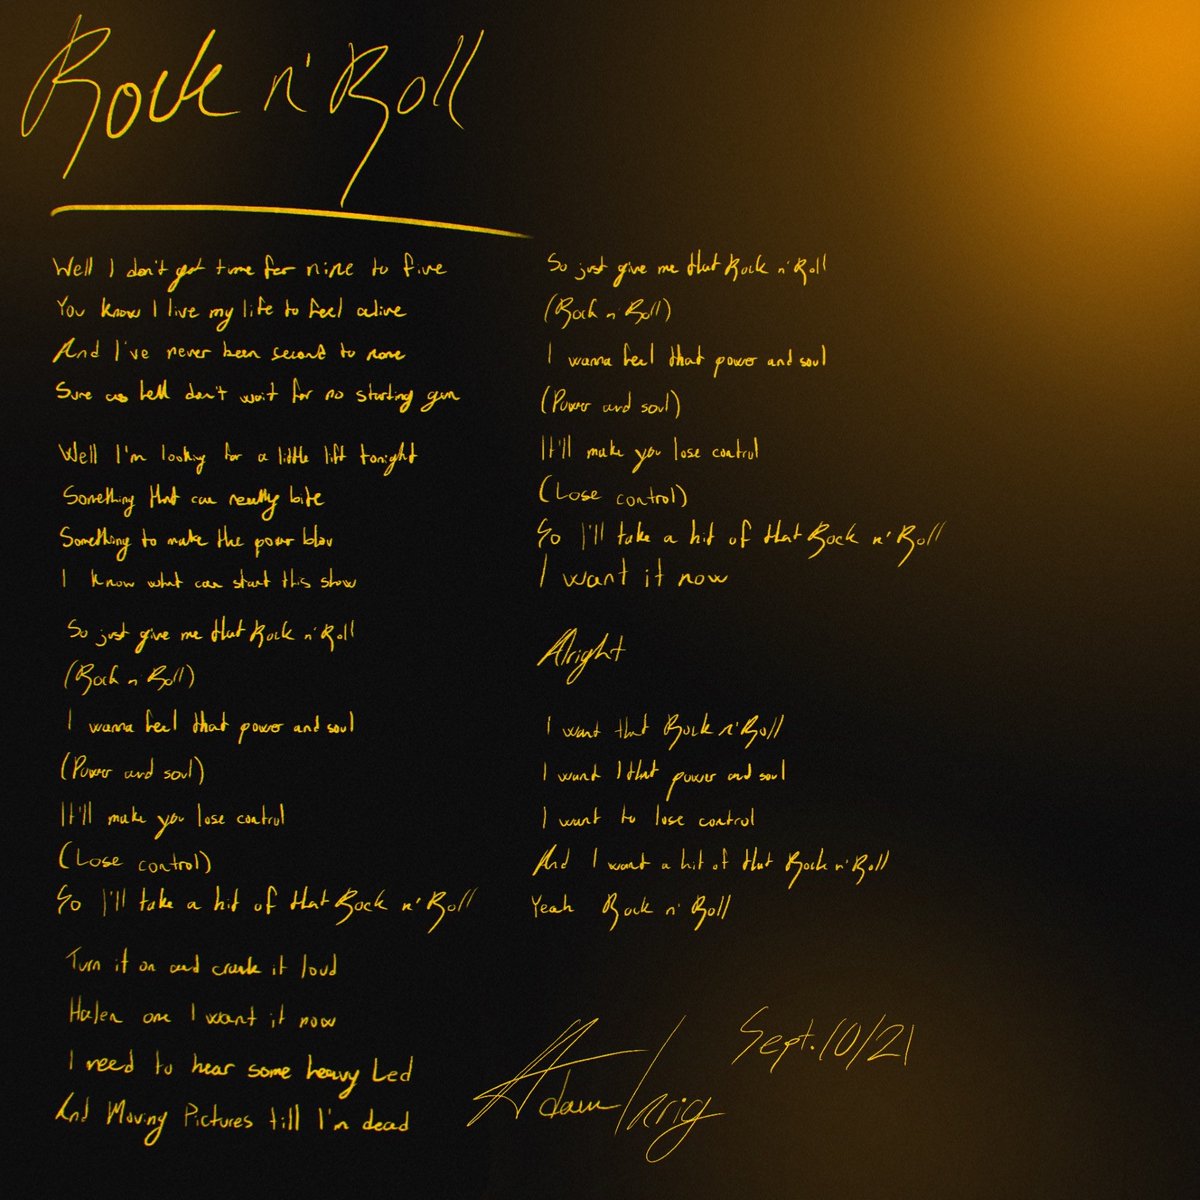 Rock n' Roll
Well I don't got time for nine to five
You know I live my life to feel alive
And I've never been second to none
Sure as hell don't wait for no starting gun
Well I'm looking for a little lift tonight
Something that can really bite
Something to make the power blow
I know what can start this show
So just give me that Rock n' Roll
(Rock n' Roll)
I wanna feel that power and soul
(Power and soul)
It'll make you lose control
(Lose control)
So I'll take a hit of that Rock n' Roll
Turn it on and crank it loud
Halen one I want it now
I need to hear some heavy Led
And Moving Pictures till I'm dead
So just give me that Rock n' Roll
(Rock n' Roll)
I wanna feel that power and soul
(Power and soul)
It'll make you lose control
(Lose control)
So I'll take a hit of that Rock n' Roll
I want it now
Alright
I want that Rock n' Roll
I want that power and soul
I want to lose control
And I want a hit of that Rock n' Roll
Yeah Rock n' Roll
Adam
Sept. 10/21